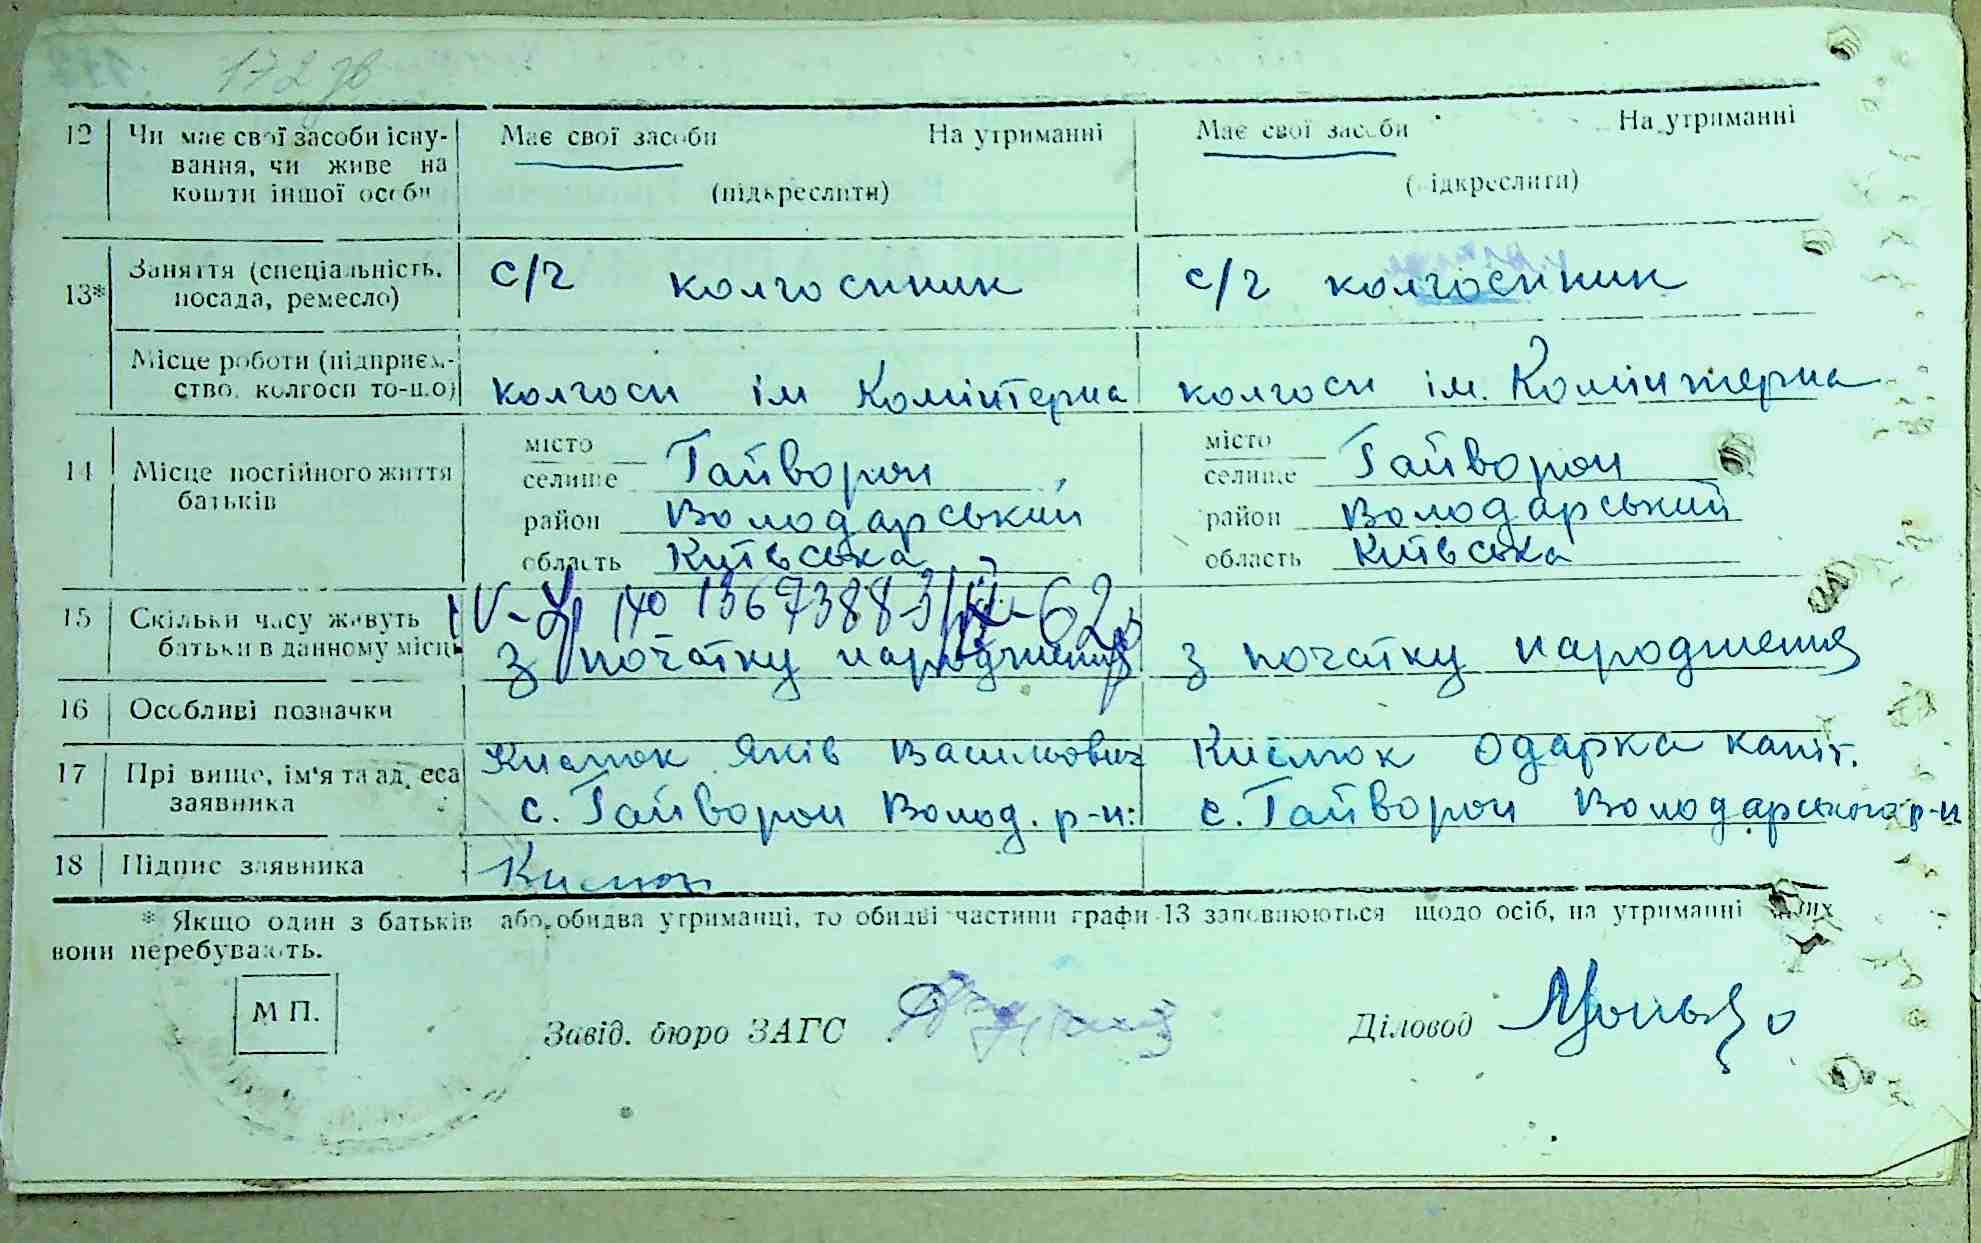 172 зв
12 Чи має свої засоби існу- Має свої засоби На утриманні Має свої засоби На утриманні
вання, чи живе на
кошти іншої особи (підкреслити) (підкреслити)
13* Заняття (спеціальність, с/г колгоспник с/г колгоспник
посада, ремесло)
Місце роботи (підприєм-
ство, колгосп то-що) колгосп ім Комінтерна колгосп ім. Комінтерна
14 Місце постійного життя
батьків
місто
селище Гайворон
район Володарський
область Київська
місто
селище Гайворон
район Володарський
область Київська
15 Скільки часу живуть
батьки в данному місці
з початку народження з початку народження
16 Особливі позначки
17 Прізвище, ім'я та адреса Кислюк Яків Васильович Кислюк Одарка капіт.
заявника с. Гайворон Волод. р-н: с. Гайворон Володарського р-н
18 Підпис заявника Кислюк
* Якщо один з батьків або обидва утриманці, то обидві частини графи 13 заповнюються щодо осіб, на утриманні яких
вони перебувають.
М П.
Завід. бюро ЗАГС Діловод